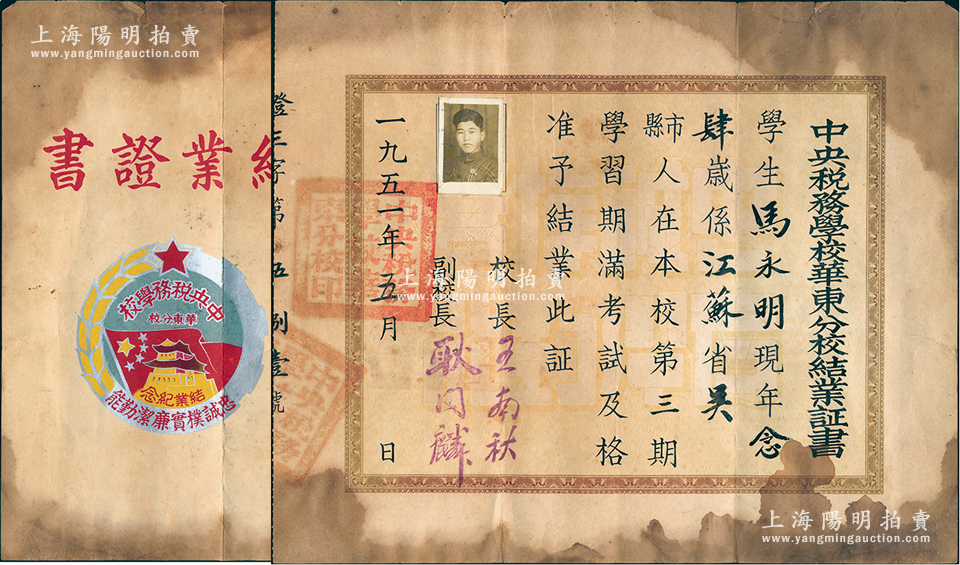 上海陽明拍賣
www.yangmingauction.com
結業證書
中央税務學校
華東分校
結業紀念
忠誠樸實廉潔勤能
證三字第 伍 捌 壹號
上海陽明拍賣
www.yangmingauction.com
中央税務學校華東分校結業証書
學生馬永明現年念
肆歲係江蘇省吴
縣市人在本校第三期
學習期滿考試及格
准予結業此証
校長王南秋
副校長耿同麟
一九五一年五月 日
上海陽明拍賣
www.yangmingauction.com
上海陽明拍賣
www.yangmingauction.com